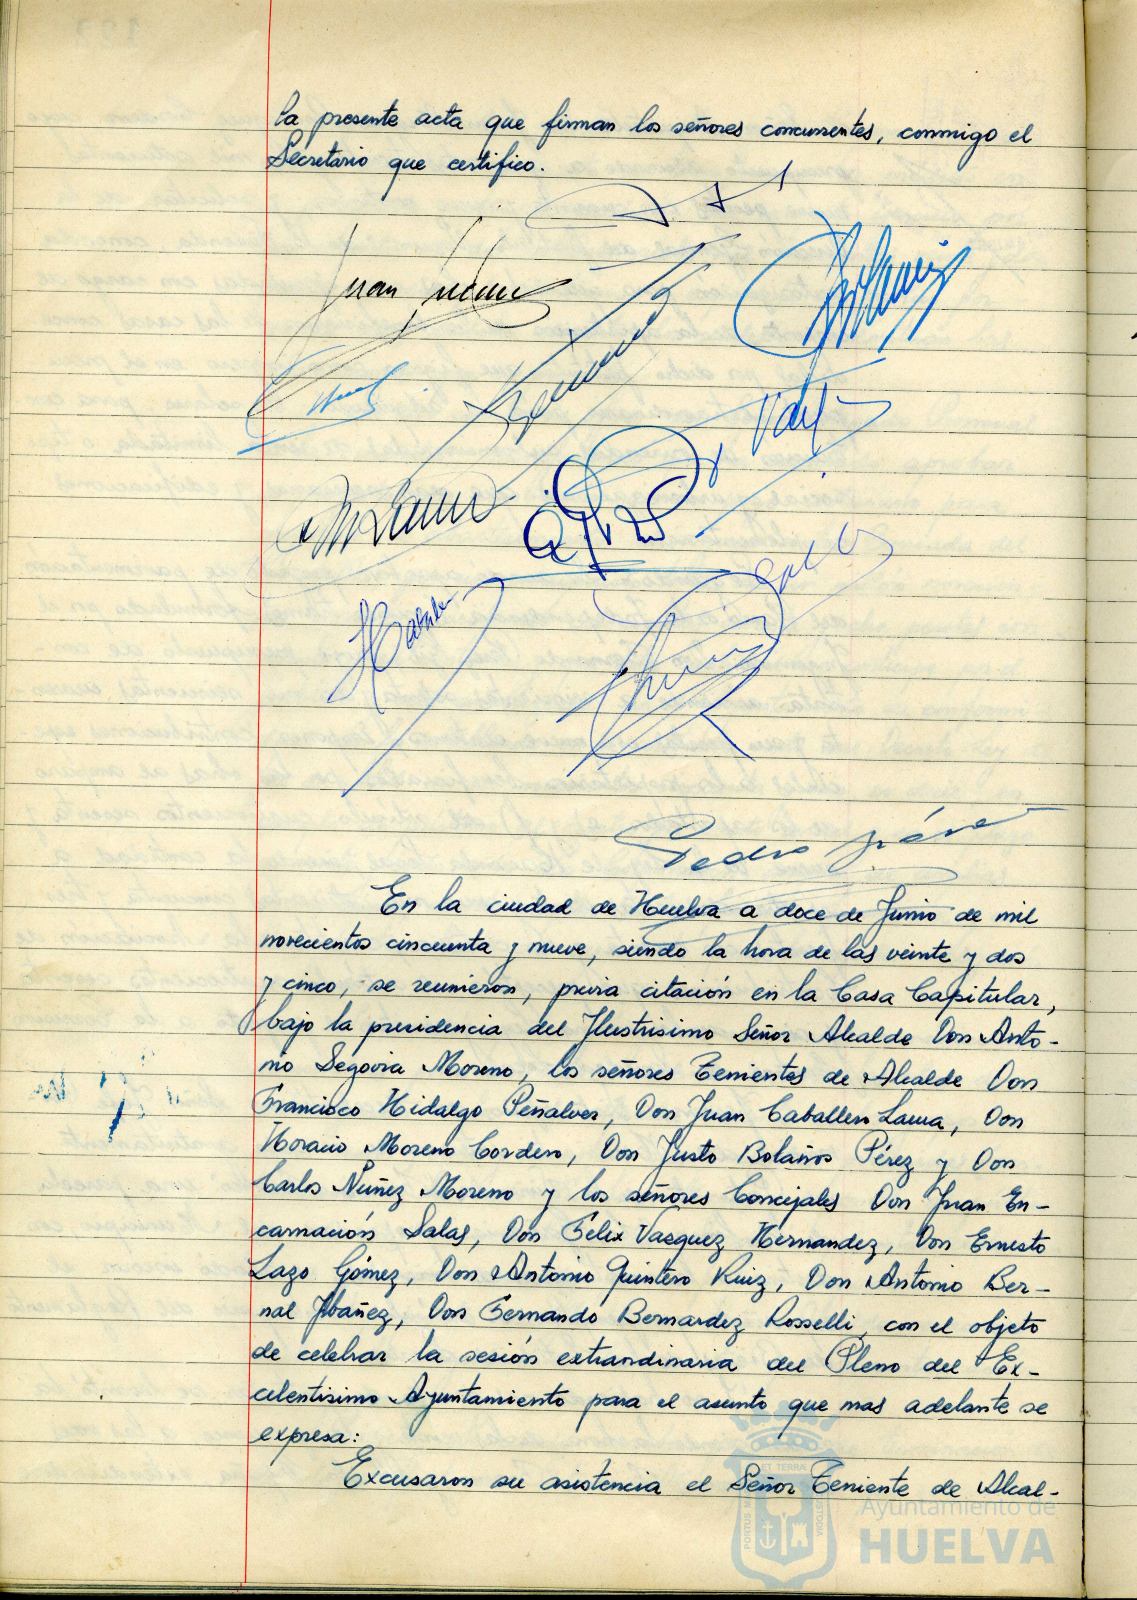 la presente acta que firman los señores concurrentes, conmigo el
Secretario que certifico.
Juan
Vazq
HCaballero
Pedro
En la ciudad de Huelva a doce de Junio de mil
novecientos cincuenta y nueve, siendo la hora de las veinte y dos
y cinco, se reunieron, previa citación en la Casa Capitular,
bajo la presidencia del Ilustrisimo Señor Alcalde Don Anto-
nio Segovia Moreno, los señores Tenientes de Alcalde Don
Francisco Hidalgo Peñalver, Don Juan Caballero Lama, Don
Horacio Moreno Cordero, Don Justo Bolaños Pérez y Don
Carlos Núñez Moreno y los señores Concejales Don Juan En-
carnación Salas, Don Felix Vasquez Hernandez, Don Ernesto
Lazo Gómez, Don Antonio Quintero Ruiz, Don Antonio Ber-
nal Ybañez, Don Fernando Bernardez Rosselli, con el objeto
de celebrar la sesión extraordinaria del Pleno del Ex-
celentisimo Ayuntamiento para el asunto que mas adelante se
expresa:
Excusaron su asistencia el Señor Teniente de Alcal-
Ayuntamiento de
HUELVA